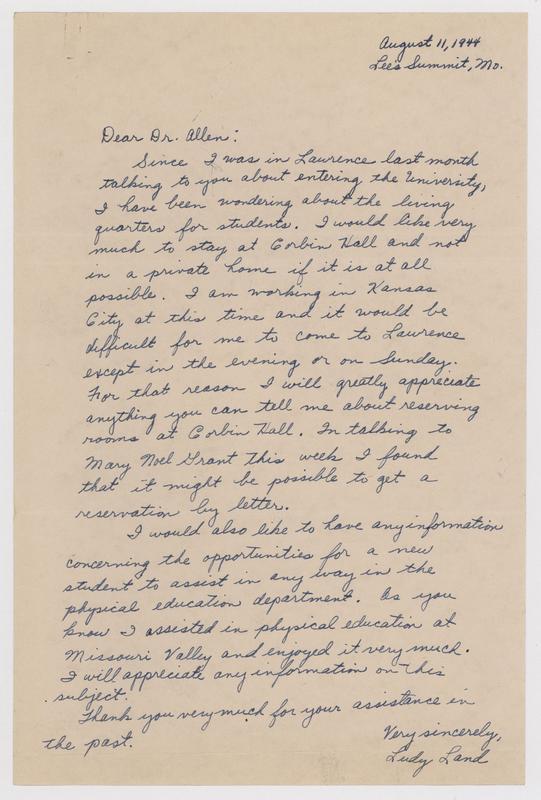 August 11, 1944
Lee's Summit, Mo.
Dear Dr. Allen:
Since I was in Lawrence last month
talking to you about entering the University,
I have been wondering about the living
quarters for students. I would like very
much to stay at Corbin Hall and not
in a private home if it is at all
possible. I am working in Kansas
City at this time and it would be
difficult for me to come to Lawrence
except in the evening or on Sunday.
For that reason I will greatly appreciate
anything you can tell me about reserving
rooms at Corbin Hall. In talking to
Mary Noel Grant this week I found
that it might be possible to get a
reservation by letter.
I would also like to have any information
concerning the opportunities for a new
student to assist in any way in the
physical education department. As you
know I assisted in physical education at
Missouri Valley and enjoyed it very much.
I will appreciate any information on this
subject.
Thank you very much for your assistance in
the past.
Very sincerely,
Ludy Land